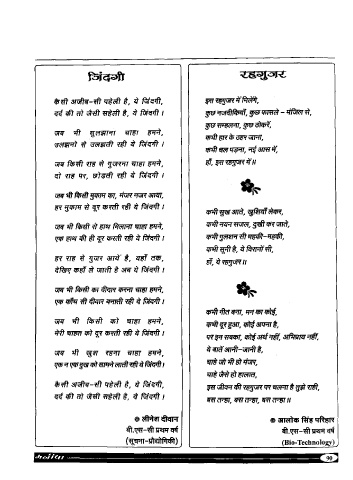 ज़िंदगी
कैसी अजीब-सी पहेली है, ये जिंदगी,
दर्द की तो जैसी सहेली है, ये जिंदगी।
जब भी सुलझाना चाहा हमने,
उलझनो से उलझती रही ये जिंदगी।
जब किसी राह से गुजरना चाहा हमने,
दो राह पर, छोडती रही ये जिंदगी।
जब भी किसी मुकाम का, मंजर नजर आया,
हर मुकाम से दूर करती रही ये जिंदगी।
जब भी किसी से हाथ मिलाना चाहा हमने,
एक हाथ की ही दूर करती रही ये जिंदगी।
हर राह से गुजर आये हैं, यहाँ तक,
देखिए कहाँ ले जाती है अब ये जिंदगी।
जब भी किसी का दीदार करना चाहा हमने,
एक काँच सी दीवार बनाती रही ये जिंदगी।
जब भी किसी को चाहा हमने,
मेरी चाहत को दूर करती रही ये जिंदगी।
जब भी खुश रहना चाहा हमने,
एक न एक दुख को सामने लाती रही ये जिंदगी।
कैसी अजीब-सी पहेली है, ये जिंदगी,
दर्द की तो जैसी सहेली है, ये जिंदगी।
लीनेश दीवान
बी.एस-सी प्रथम वर्ष
(सूचना-प्रौद्योगिकी)
रहगुजर
इस रहगुजर में मिलेंगे,
कुछ नजदीकियाँ, कुछ फासले - मंजिल से,
कुछ सम्हलना, कुछ ठोकरें,
कभी हार के ठहर जाना,
कभी चल पड़ना, नई आस में,
हाँ, इस रहगुजर में॥
कभी सुख आते, खुशियाँ लेकर,
कभी नयन सजल, दुखी कर जाते,
कभी गुलशन सी महकी-महकी,
कभी सूनी है, ये विरानों सी,
हाँ, ये रहगुजर॥
कभी गीत बना, मन का कोई,
कभी दूर हुआ, कोई अपना है,
पर इन सबका, कोई अर्थ नहीं, अभिप्राय नहीं,
ये बातें आनी-जानी है,
चाहे जो भी हो मंजर,
चाहे जैसे हो हालात,
इस जीवन की रहगुजर पर चलना है तुझे राही,
बस तन्हा, बस तन्हा, बस तन्हा॥
आलोक सिंह परिहार
बी.एस-सी प्रथम वर्ष
(Bio-Technology)
90